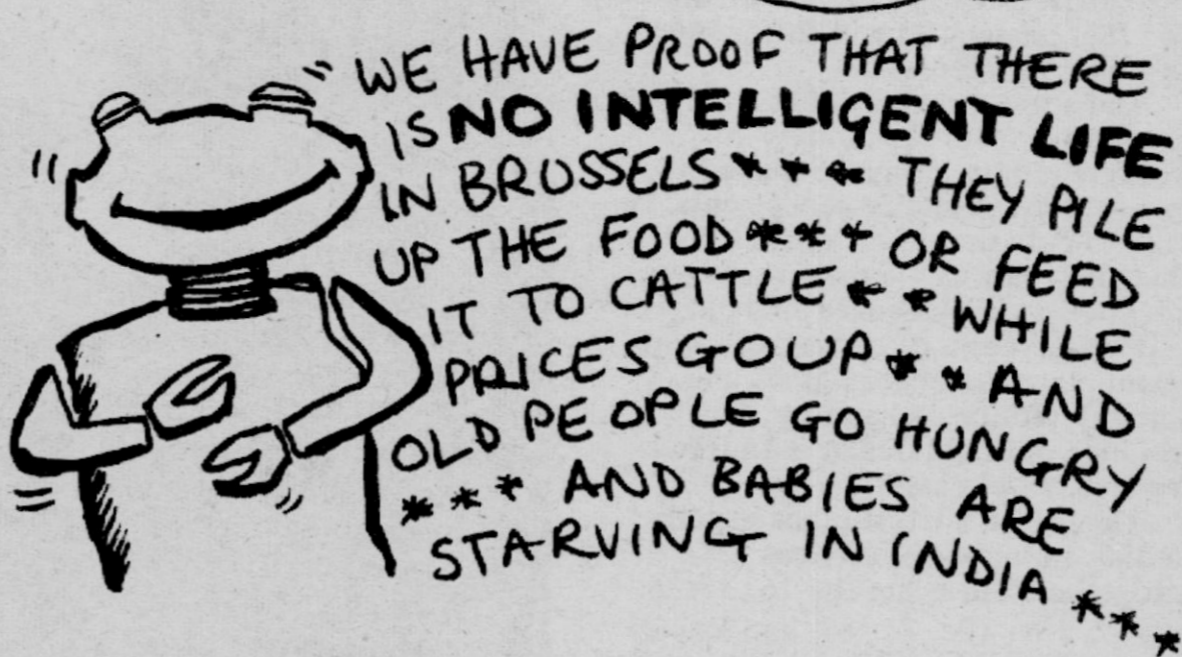 "WE HAVE PROOF THAT THERE
IS NO INTELLIGENT LIFE
IN BRUSSELS * * * THEY PILE
UP THE FOOD * * * OR FEED
IT TO CATTLE * * WHILE
PRICES GO UP * * AND
OLD PEOPLE GO HUNGRY
* * * AND BABIES ARE
STARVING IN INDIA * * *